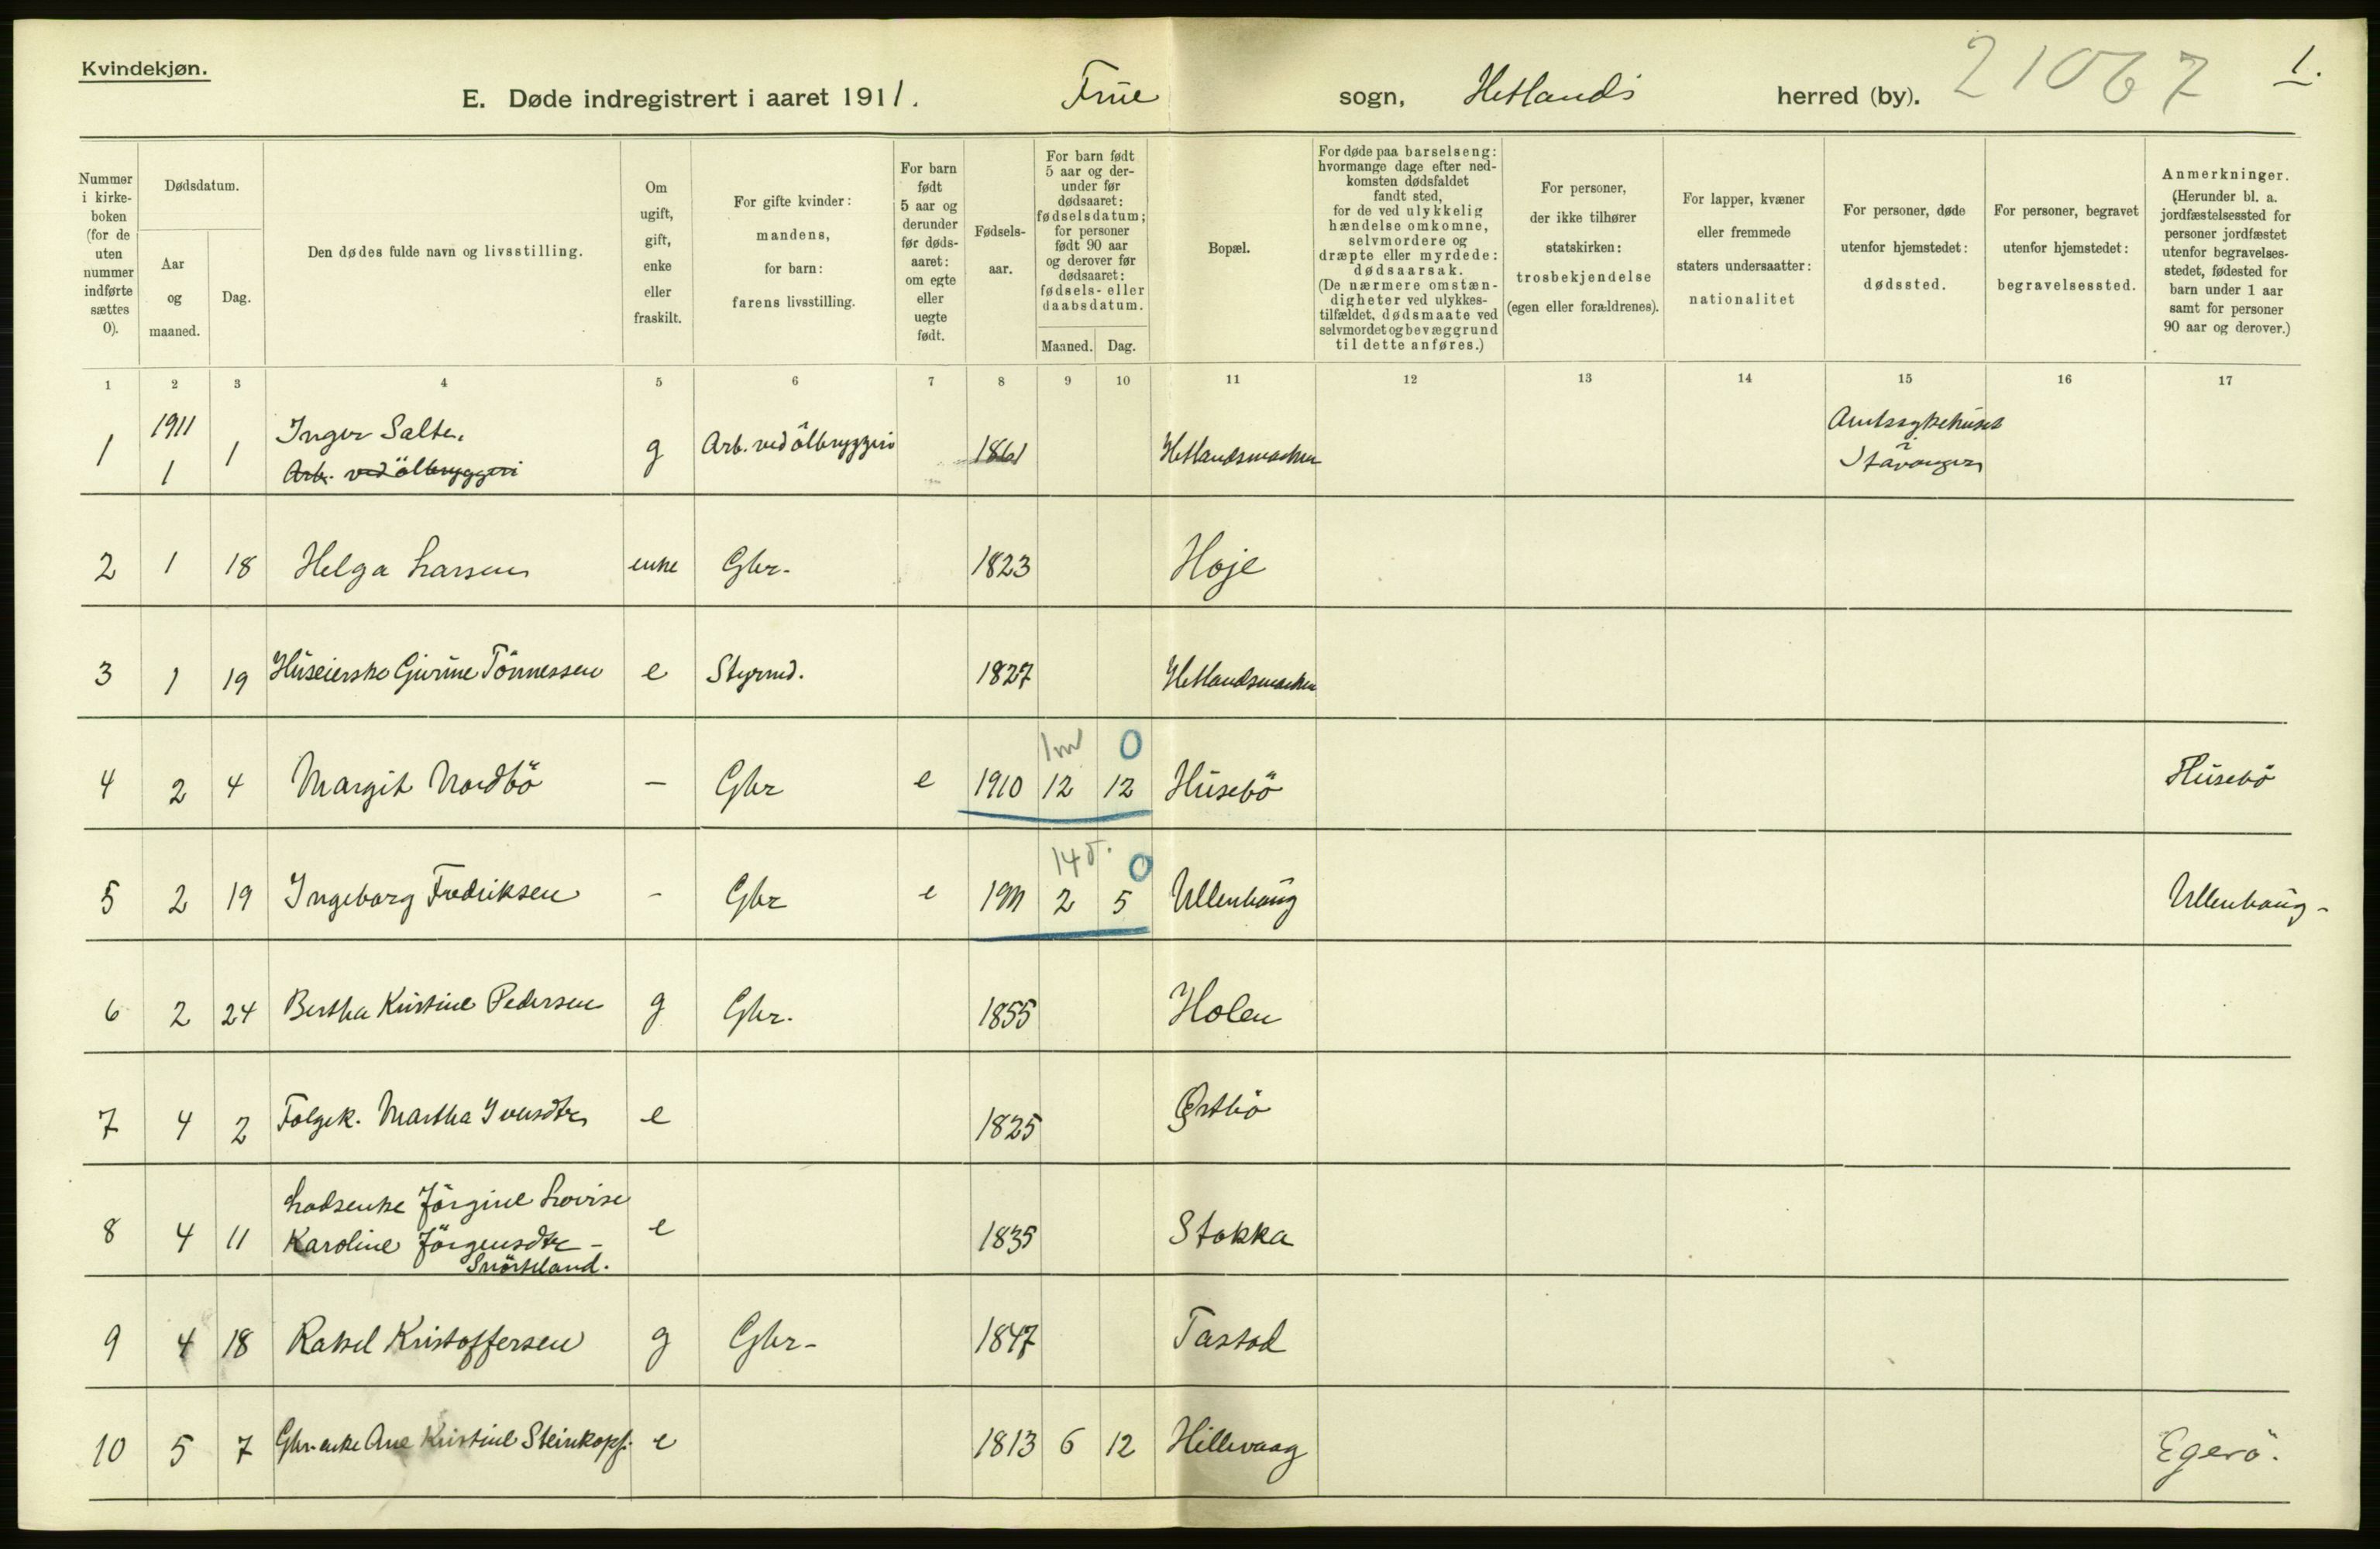 Kvindekjøn.
E. Døde indregistrert i aaret 1911. Frue sogn, Hetlands herred (by). 21067 1.
Nummer i kirke-boken (for de uten nummer indførte sættes 0).
Dødsdatum.
Aar og maaned.
Dag.
Den dødes fulde navn og livsstilling.
Om ugift, gift, enke eller fraskilt.
For gifte kvinder: mandens, for barn: farens livsstilling.
For barn født 5 aar og derunder før døds-aaret: om egte eller uegte født.
Fødsels-aar.
For barn født 5 aar og der-under før dødsaaret: fødselsdatum; for personer født 90 aar og derover før dødsaaret: fødsels- eller daabsdatum.
Maaned. Dag.
Bopæl.
For døde paa barselseng: hvormange dage efter ned-komsten dødsfaldet fandt sted, for de ved ulykkelig hændelse omkomne, selvmordere og dræpte eller myrdede: dødsaarsak. (De nærmere omstæn-digheter ved ulykkes-tilfældet, dødsmaate ved selvmordet og bevæggrund til dette anføres.)
For personer, der ikke tilhører statskirken: trosbekjendelse (egen eller forældrenes).
For lapper, kvæner eller fremmede staters undersaatter: nationalitet
For personer, døde utenfor hjemstedet: dødssted.
For personer, begravet utenfor hjemstedet: begravelsessted.
Anmerkninger. (Herunder bl. a. jordfæstelsessted for personer jordfæstet utenfor begravelses-stedet, fødested for barn under 1 aar samt for personer 90 aar og derover.)
1 2 3 4 5 6 7 8 9 10 11 12 13 14 15 16 17
1 1911 1 1 Inger Salte. Arb. ved ölbryggeri g Arb. ved ölbryggeri 1861 Hetlandsmarken Amtssykehuset i Stavanger
2 1 18 Helga Larsen enke Gbr. 1823 Hoje
3 1 19 Huseierske Gurine Tönnessen e Styrmd. 1827 Hetlandsmarken
4 2 4 Margit Nordbö — Gbr e 1910 12 12 1 m 0 Husebö Husebö
5 2 19 Ingeborg Fredriksen - Gbr e 1911 2 5 14 d. 0 Ullenhaug Ullenhaug-
6 2 24 Bertha Kristine Pedersen g Gbr. 1855 Holen
7 4 2 Folgek. Martha Iversdtr e 1825
8 4 11 Lodsenke Jörgine Lovise
Karoline Jörgensdtr - e 1835 Stokka
9 4 18 Rakel Kristoffersen g Gbr- 1847 Tastad
10 5 7 Gbr-enke Ane Kristine Steinkopf. e 1813 6 12 Hillevaag Egerö.